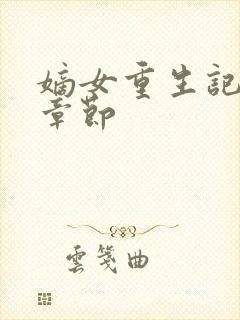 嫡女重生記
章節
雲箋曲